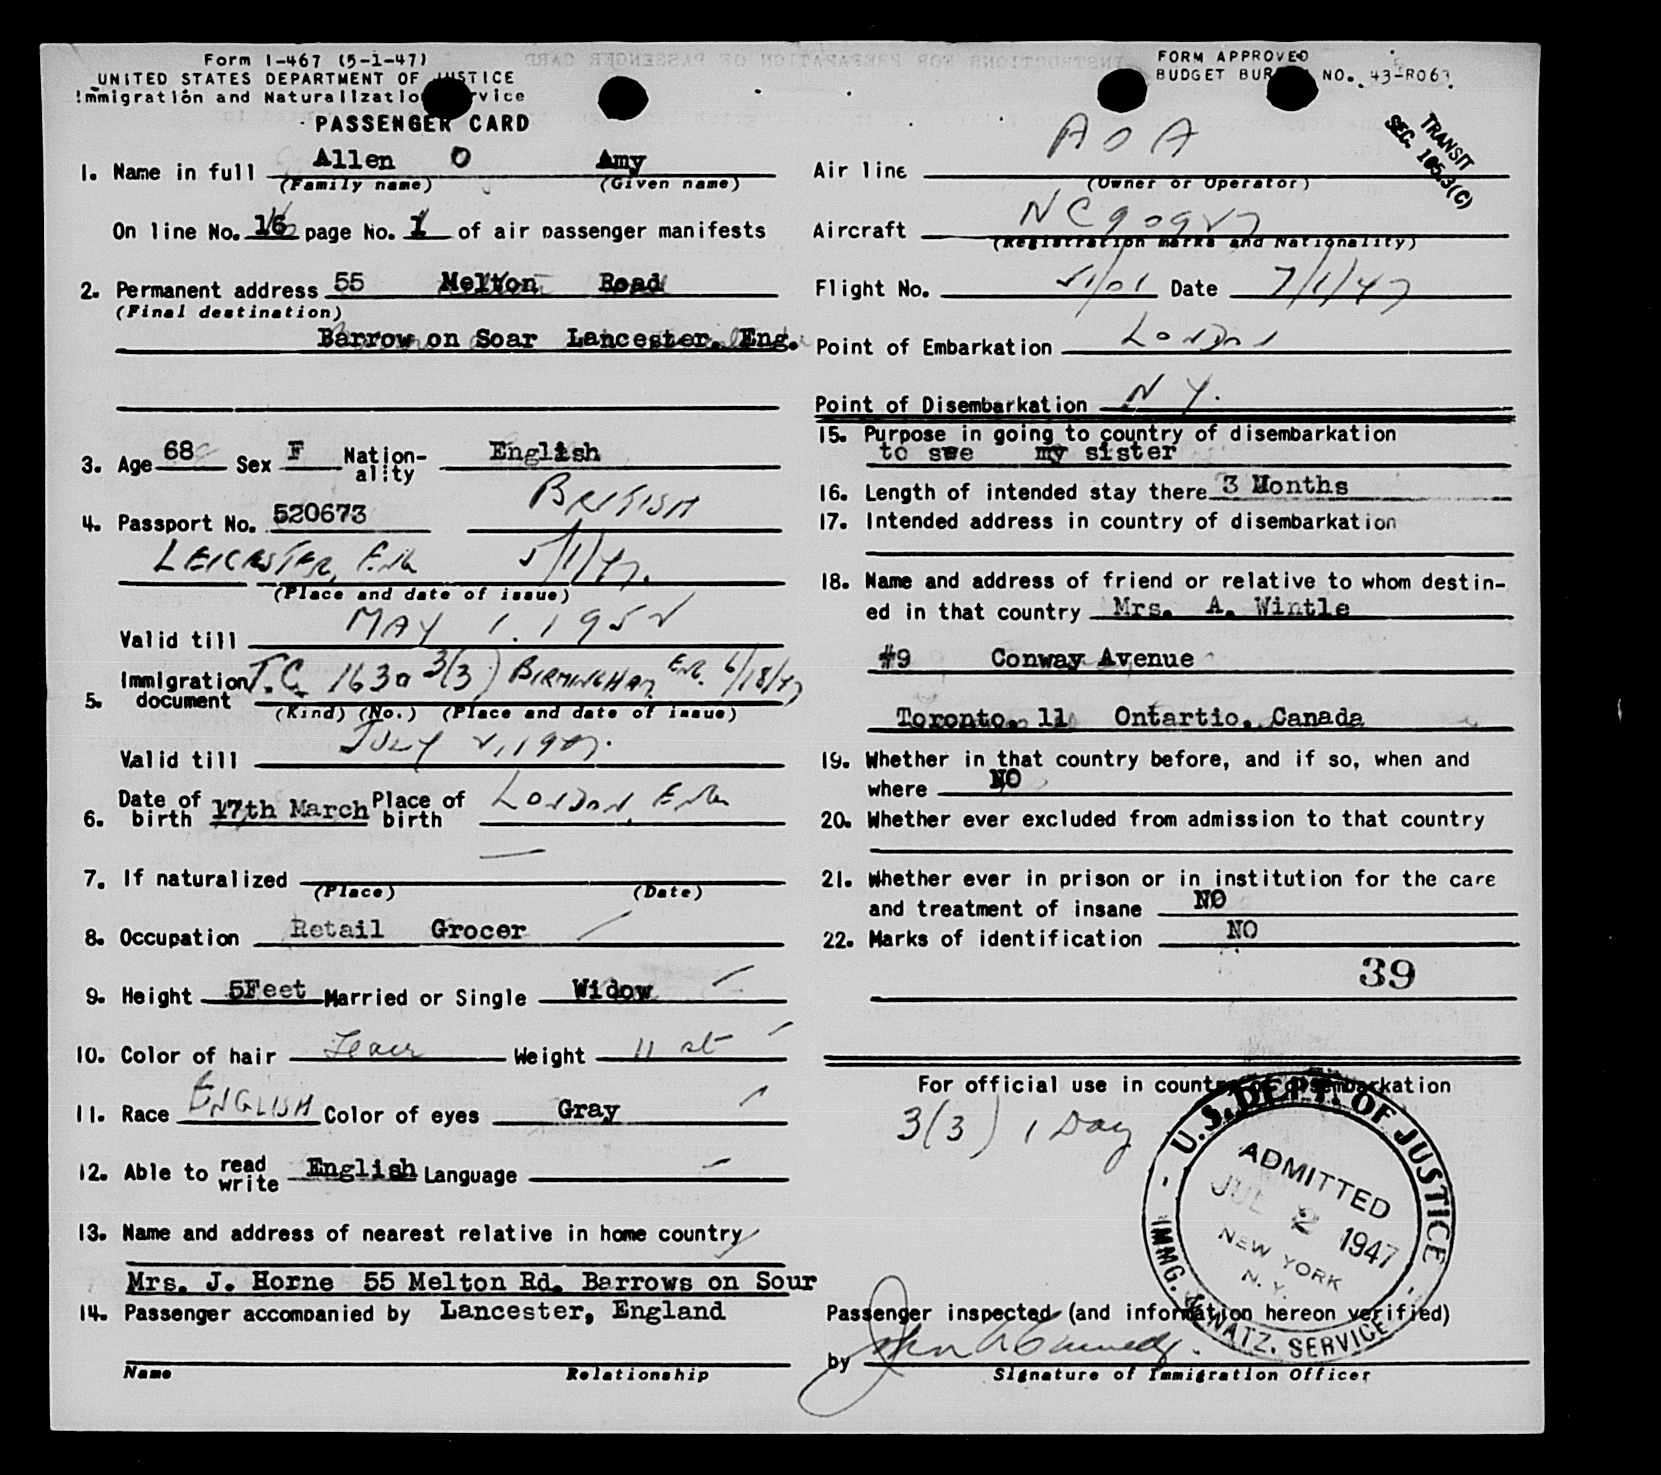 Form I-467 (5-1-47)
UNITED STATES DEPARTMENT OF JUSTICE
Immigration and Naturalization Service
PASSENGER CARD
FORM APPROVED
BUDGET BUREAU NO. 43-R063.
TRANSIT
SEC. 165.3(C)
1. Name in full Allen O Amy
(Family name) (Given name)
On line No. 16 page No. 1 of air passenger manifests
2. Permanent address 55 Melton Road
(Final destination)
Barrow on Soar Lancester. Eng.
3. Age 68 Sex F Nation-ality English
4. Passport No. 520673 BRITISH
LEICESTER, ENG 5/1/47.
(Place and date of issue)
Valid till MAY 1. 1952
5. Immigration document T.C. 1630 3(3) BIRMINGHAM, ENG. 6/18/47
(Kind) (No.) (Place and date of issue)
Valid till JULY 2, 1947.
6. Date of birth 17th March Place of birth LONDON, ENG
7. If naturalized —
(Place) (Date)
8. Occupation Retail Grocer
9. Height 5Feet Married or Single Widow
10. Color of hair Weight 11 st
11. Race ENGLISH Color of eyes Gray
12. Able to read write English Language
13. Name and address of nearest relative in home country
Mrs. J. Horne 55 Melton Rd. Barrows on Sour
14. Passenger accompanied by Lancester, England
Name Relationship
Air line A O A
(Owner or Operator)
Aircraft NC90927
(Registration marks and Nationality)
Flight No. 51/01 Date 7/1/47
Point of Embarkation LONDON
Point of Disembarkation N Y.
15. Purpose in going to country of disembarkation
to see my sister
16. Length of intended stay there 3 Months
17. Intended address in country of disembarkation
18. Name and address of friend or relative to whom destin-
ed in that country Mrs. A. Wintle
#9 Conway Avenue
Toronto. 11 Ontartio. Canada
19. Whether in that country before, and if so, when and
where NO
20. Whether ever excluded from admission to that country
21. Whether ever in prison or in institution for the care
and treatment of insane NO
22. Marks of identification NO
39
For official use in country of disembarkation
3(3) 1 Day
U.S. DEPT. OF JUSTICE
ADMITTED
JUL 2 1947
NEW YORK
N.Y.
IMMG. & NATZ. SERVICE
Passenger inspected (and information hereon verified)
by
Signature of Immigration Officer